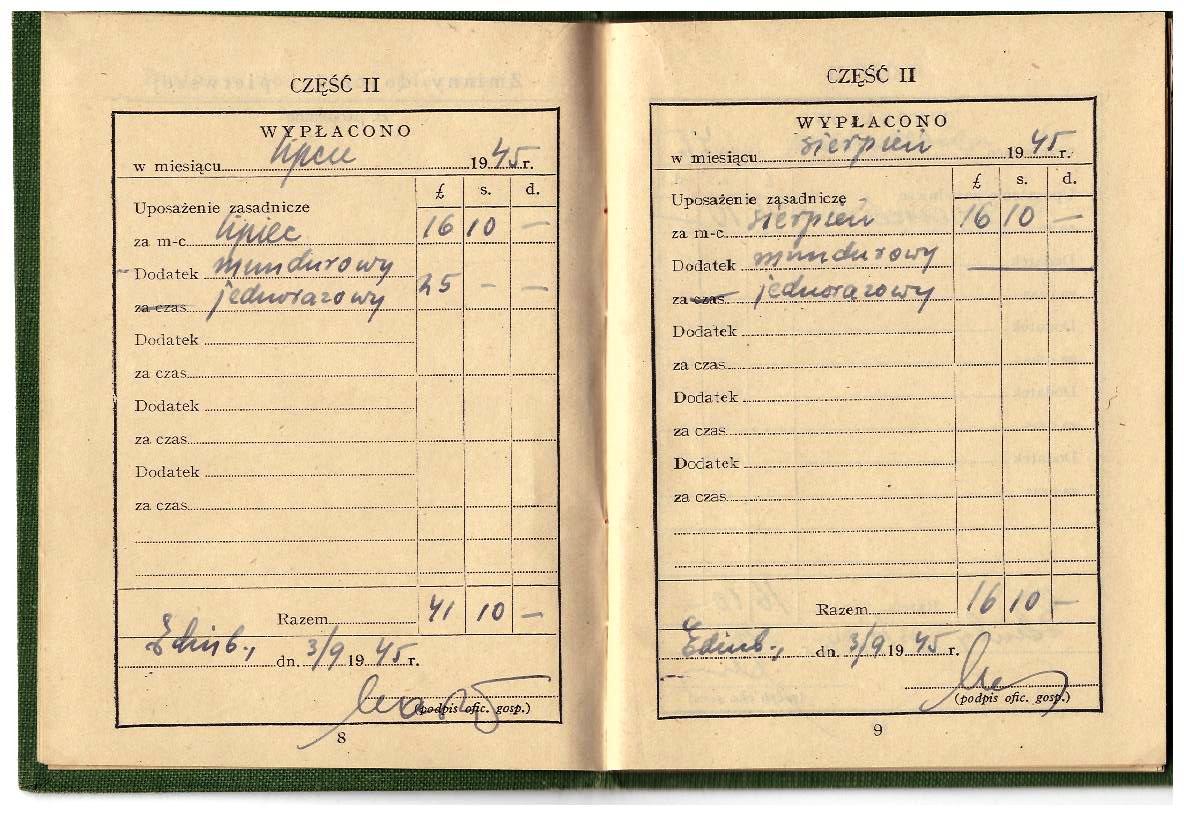 CZĘŚĆ II
WYPŁACONO
w miesiącu lipcu 1945 r.
£ s. d.
Uposażenie zasadnicze
za m-c lipiec 16 10 —
Dodatek mundurowy
za czas jednorazowy 25 — —
Dodatek
za czas
Dodatek
za czas
Dodatek
za czas
Razem 41 10 —
Edinb., dn. 3/9 1945 r.
(podpis ofic. gosp.)
8
CZĘŚĆ II
WYPŁACONO
w miesiącu sierpień 1945 r.
£ s. d.
Uposażenie zasadniczę
za m-c sierpień 16 10 —
Dodatek mundurowy —
za czas jednorazowy
Dodatek
za czas
Dodatek
za czas
Dodatek
za czas
Razem 16 10 —
Edinb., dn. 3/9 1945 r.
(podpis ofic. gosp.)
9